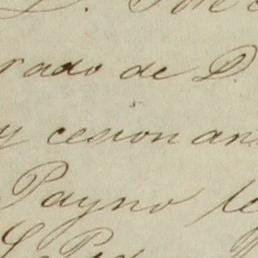 D.
rado de D.
y cesion an
Payno le